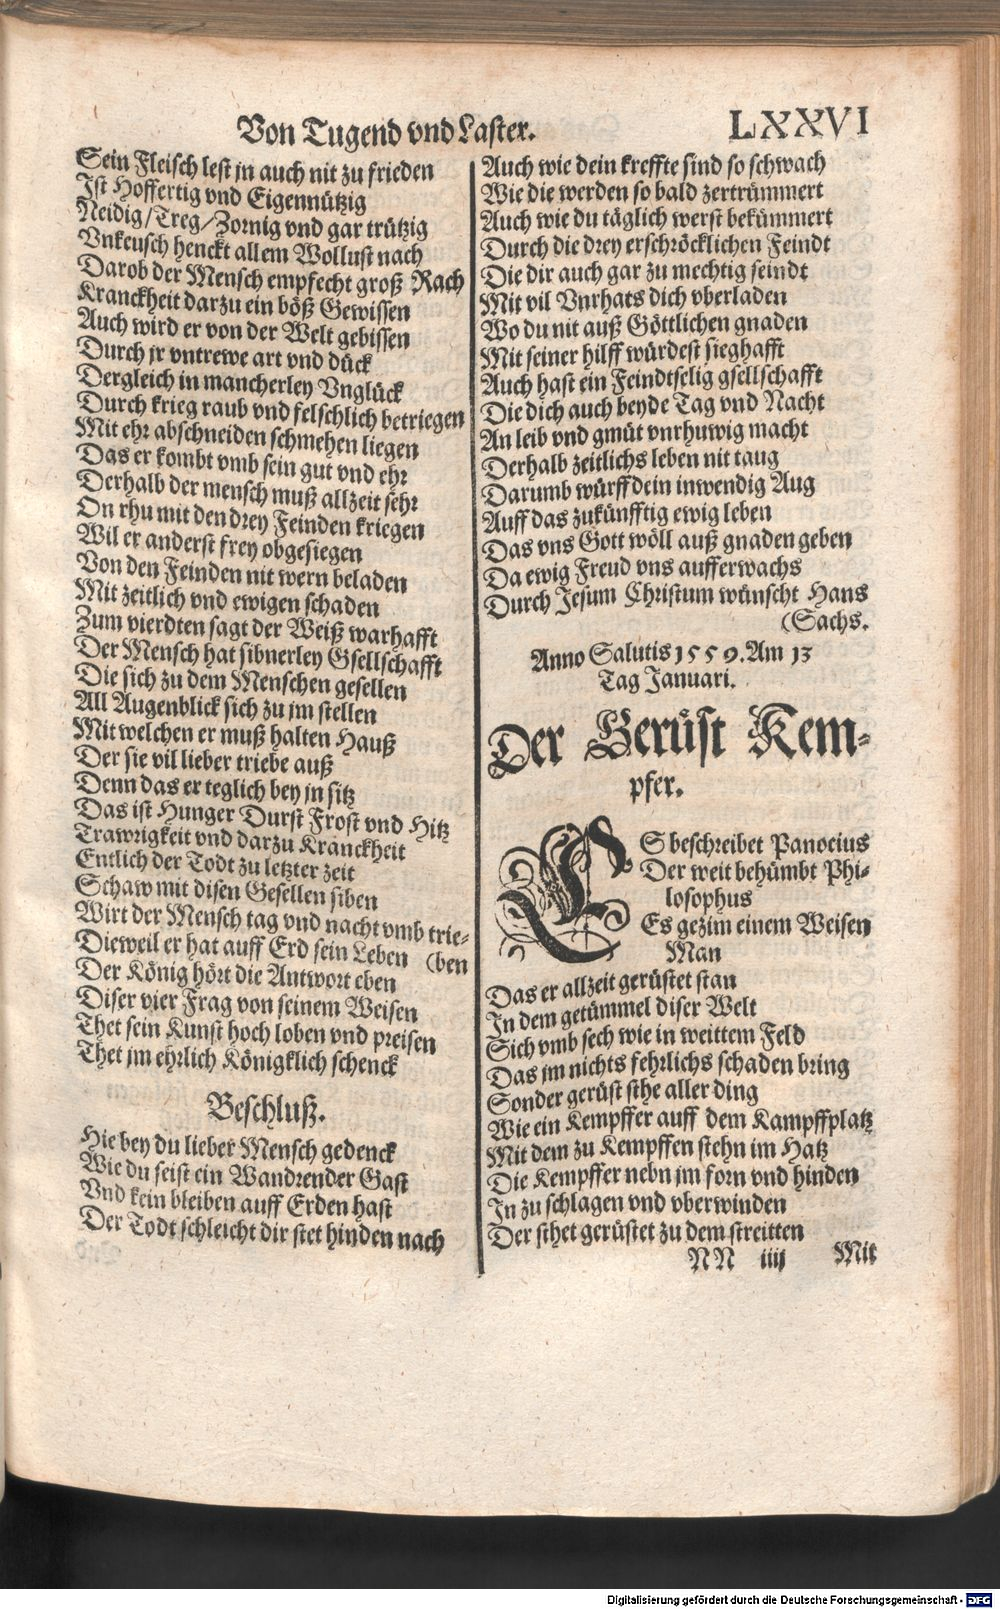 Von Tugend vnd Laster. LXXVI
Sein Fleisch lest jn auch nit zu frieden
Ist Hoffertig vnd Eigennützig
Neidig/Treg/Zornig vnd gar trützig
Vnkeusch henckt allem Wollust nach
Darob der Mensch empfecht groß Rach
Kranckheit darzu ein böß Gewissen
Auch wird er von der Welt gebissen
Durch jr vntrewe art vnd dück
Dergleich in mancherley Vnglück
Durch krieg raub vnd felschlich betriegen
Mit ehr abschneiden schmehen liegen
Das er kombt vmb sein gut vnd ehr
Derhalb der mensch muß allzeit sehr
On rhu mit den drey Feinden kriegen
Wil er anderst frey obgesiegen
Von den Feinden nit wern beladen
Mit zeitlich vnd ewigen schaden
Zum vierdten sagt der Weiß warhafft
Der Mensch hat sibnerley Gsellschafft
Die sich zu dem Menschen gesellen
All Augenblick sich zu jm stellen
Mit welchen er muß halten Hauß
Der sie vil lieber triebe auß
Denn das er teglich bey jn sitz
Das ist Hunger Durst Frost vnd Hitz
Trawrigkeit vnd darzu Kranckheit
Entlich der Todt zu letzter zeit
Schaw mit disen Gesellen siben
Wirt der Mensch tag vnd nacht vmb trie-
Dieweil er hat auff Erd sein Leben (ben
Der König hört die Antwort eben
Diser vier Frag von seinem Weisen
Thet sein Kunst hoch loben vnd preisen
Thet jm ehrlich Königklich schenck
Beschluß.
Hie bey du lieber Mensch gedenck
Wie du seist ein Wandrender Gast
Vnd kein bleiben auff Erden hast
Der Todt schleicht dir stet hinden nach
Auch wie dein kreffte sind so schwach
Wie die werden so bald zertrümmert
Auch wie du täglich werst bekümmert
Durch die drey erschröcklichen Feindt
Die dir auch gar zu mechtig seindt
Mit vil Vnrhats dich vberladen
Wo du nit auß Göttlichen gnaden
Mit seiner hilff würdest sieghafft
Auch hast ein Feindtselig gsellschafft
Die dich auch beyde Tag vnd Nacht
An leib vnd gmüt vnrhuwig macht
Derhalb zeitlichs leben nit taug
Darumb würff dein inwendig Aug
Auff das zukünfftig ewig leben
Das vns Gott wöll auß gnaden geben
Da ewig Freud vns aufferwachs
Durch Jesum Christum wünscht Hans
(Sachs.
Anno Salutis 1559. Am 13
Tag Januari.
Der Gerüst Kem-
pfer.
ES beschreibet Panoeius
Der weit behümbt Phi-
losophus
Es gezim einem Weisen
Man
Das er allzeit gerüstet stan
In dem getümmel diser Welt
Sich vmb sech wie in weittem Feld
Das jm nichts fehrlichs schaden bring
Sonder gerüst sthe aller ding
Wie ein Kempffer auff dem Kampffplatz
Mit dem zu Kempffen stehn im Hatz
Die Kempffer nebn jm forn vnd hinden
In zu schlagen vnd vberwinden
Der sthet gerüstet zu dem streitten
NN iiij Mit
Digitalisierung gefördert durch die Deutsche Forschungsgemeinschaft - DFG